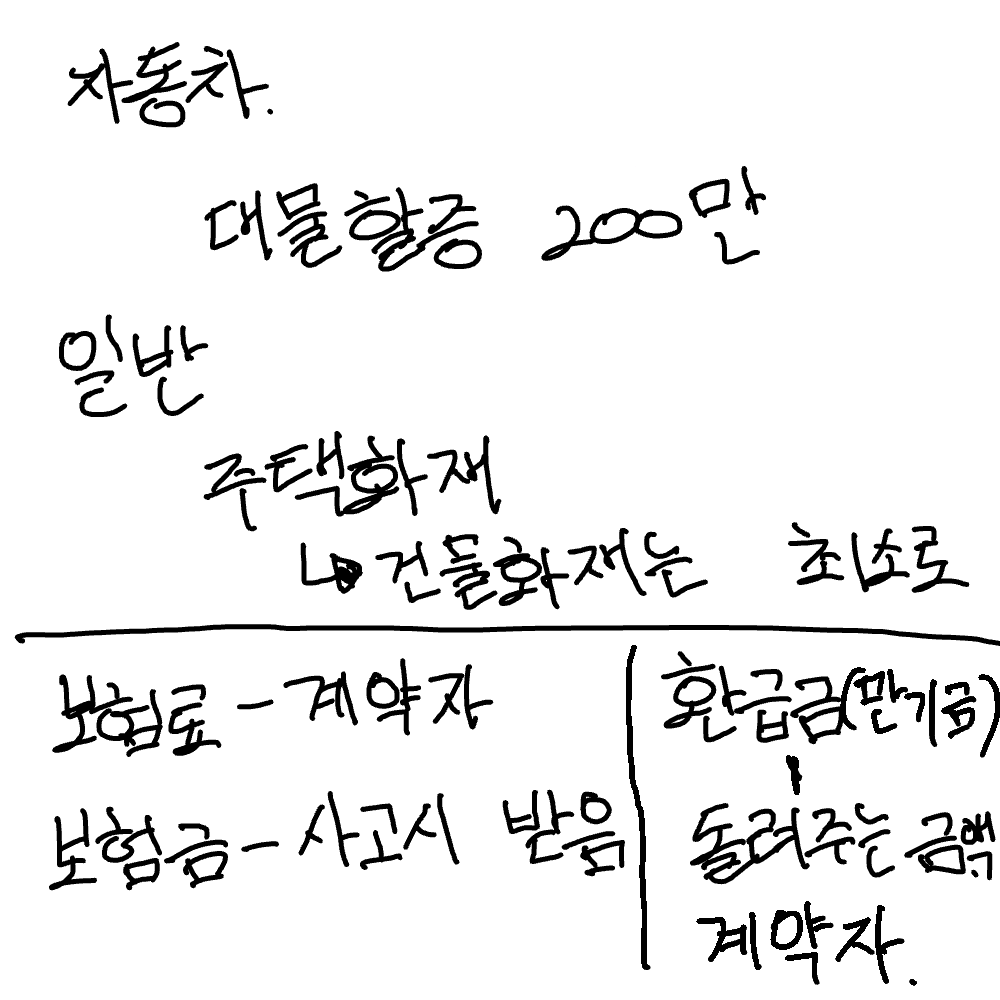 자동차.
대물할증 200만
일반
주택화재
↳ 건물화재는 최소로
보험료 - 계약자
보험금 - 사고시 받음
환급금(만기금)
돌려주는 금액
계약자.